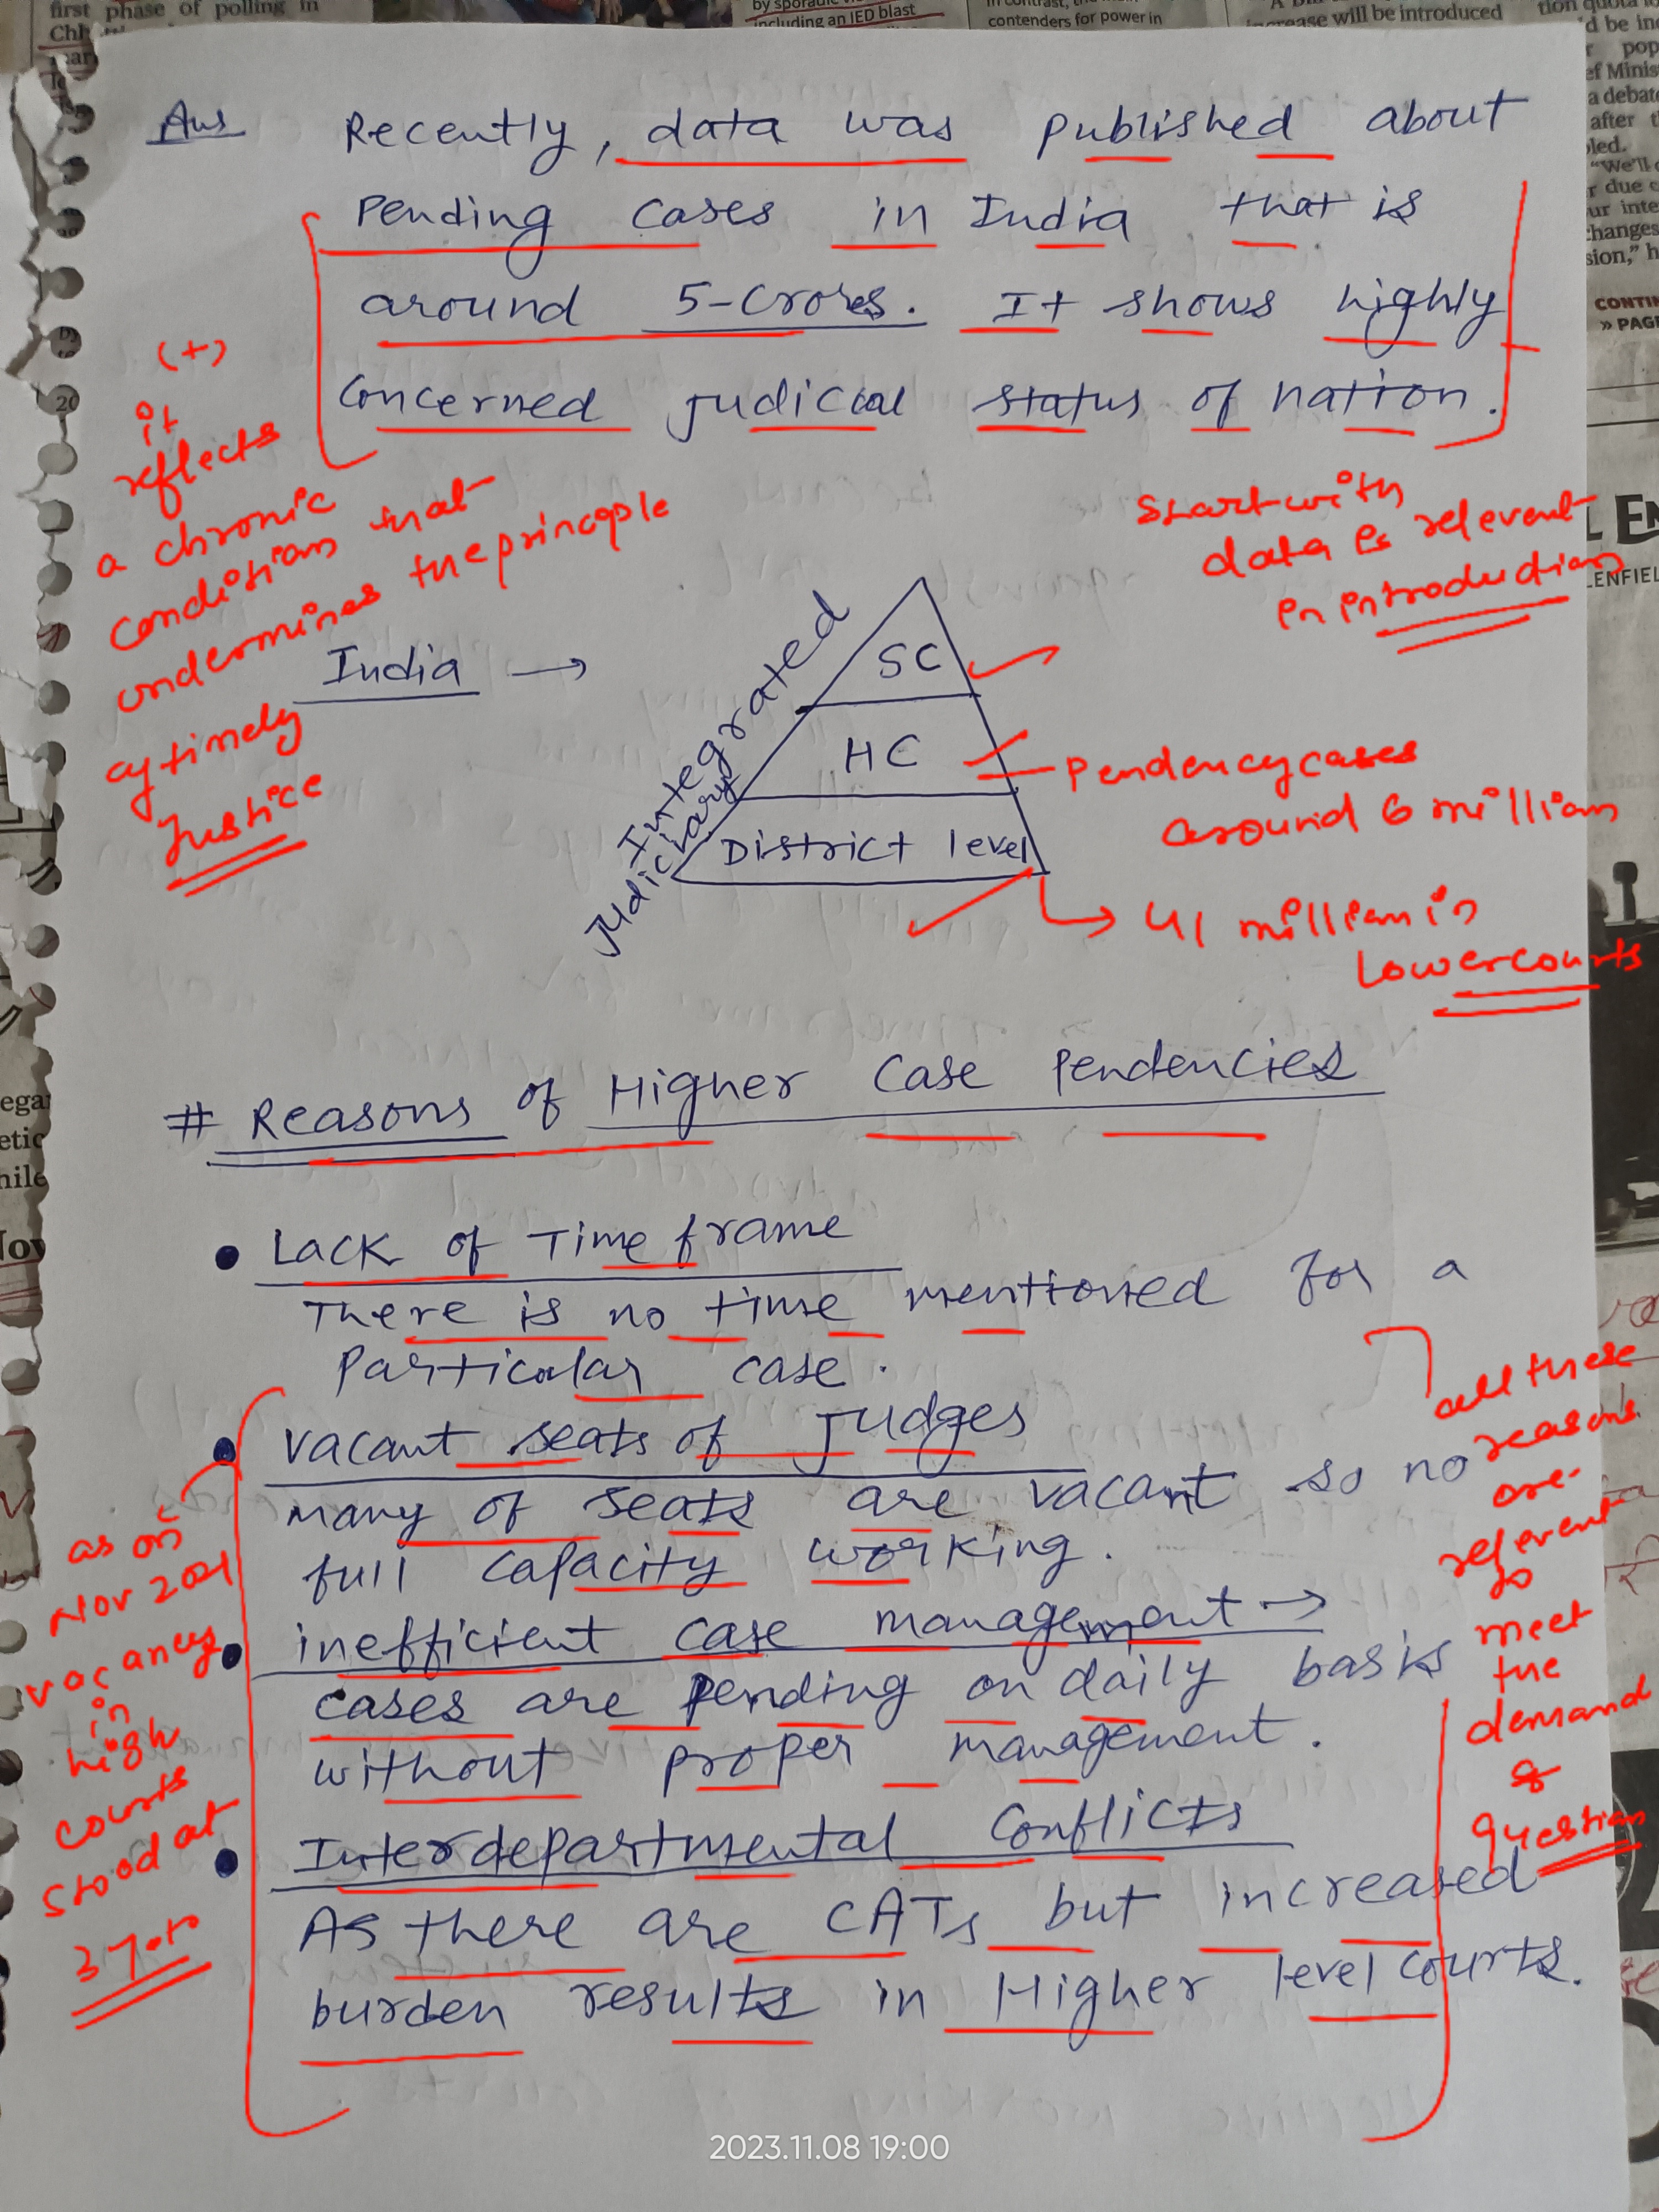 first phase of polling in
by sporadic
including an IED blast
contenders for power in
increase will be introduced
Ans Recently, data was published about
Pending cases in India that is
around 5-Crores. It shows highly
Concerned judicial status of nation.
(+)
it
reflects
a chronic
condition that
undermines the principle
of timely
Justice
Start with
data is relevent
in introduction
India →
Integrated
Judiciary
SC
HC
District level
Pendency cases
around 6 million
41 million in
Lower courts
# Reasons of Higher Case Pendencies
• Lack of Time frame
There is no time mentioned for a
Particular case.
• vacant seats of Judges
many of seats are vacant so no
full capacity working.
• inefficient case management →
cases are pending on daily basis
without proper management.
• Interdepartmental Conflicts
As there are CATs but increased
burden results in Higher level courts.
as on
Nov 2021
vacancy
in
high
courts
stood at
37%
all these
reasons
are
relevent
to
meet
the
demand
of
question
a debate
after
"We'll
due
changes
sion," h
CONTIN
» PAGE
2023.11.08 19:00